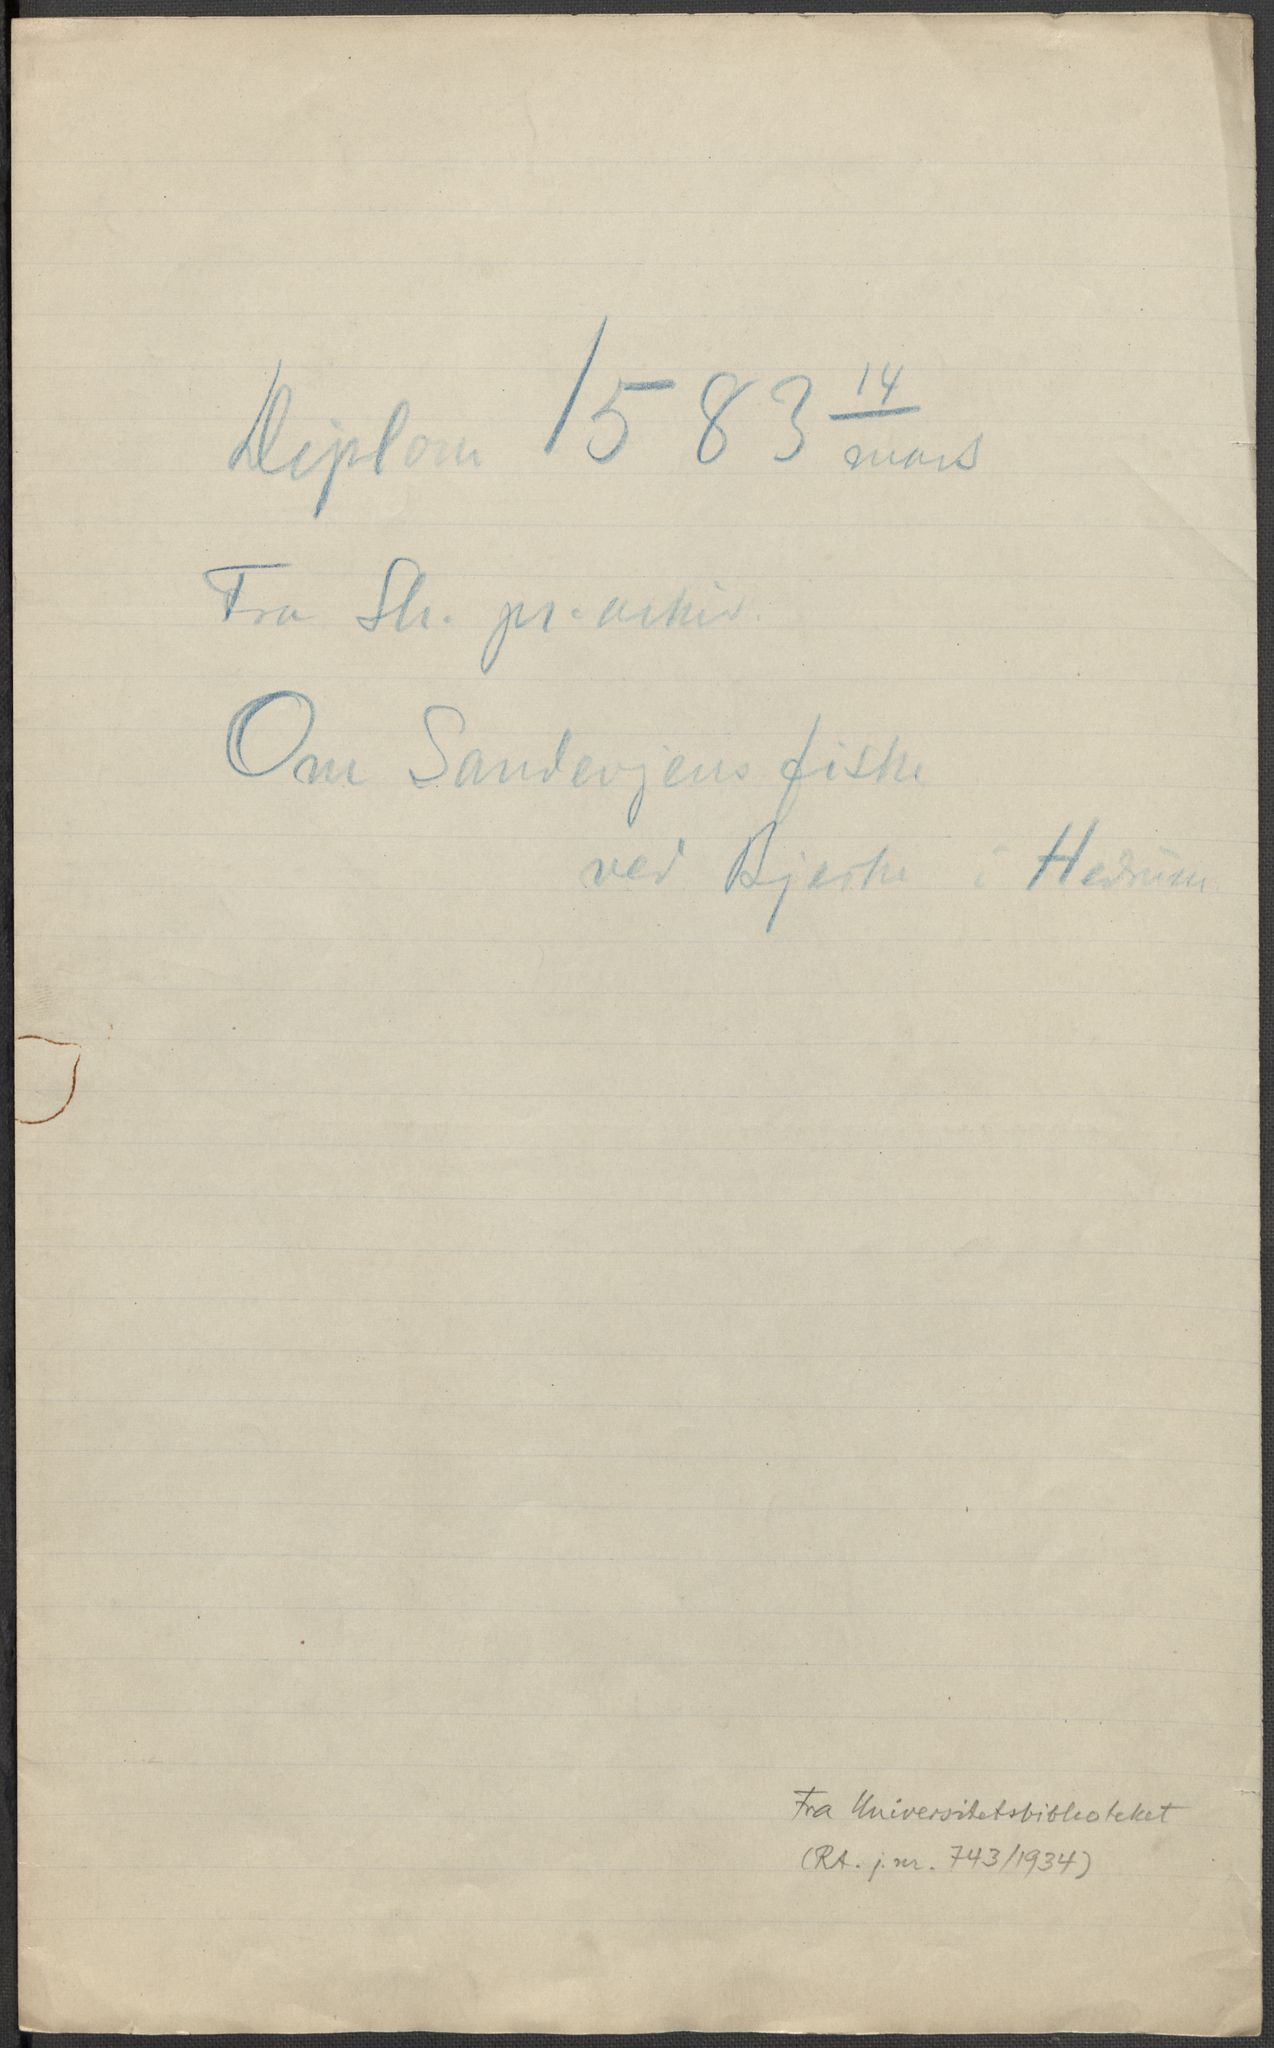 Diplom 1583 14/mars
Fra Sk. pr. arkiv.
Om Sandevjens fiske
ved Bjerke i Hedrum
Fra Universitetsbiblioteket
(RA. j. nr. 743/1934)